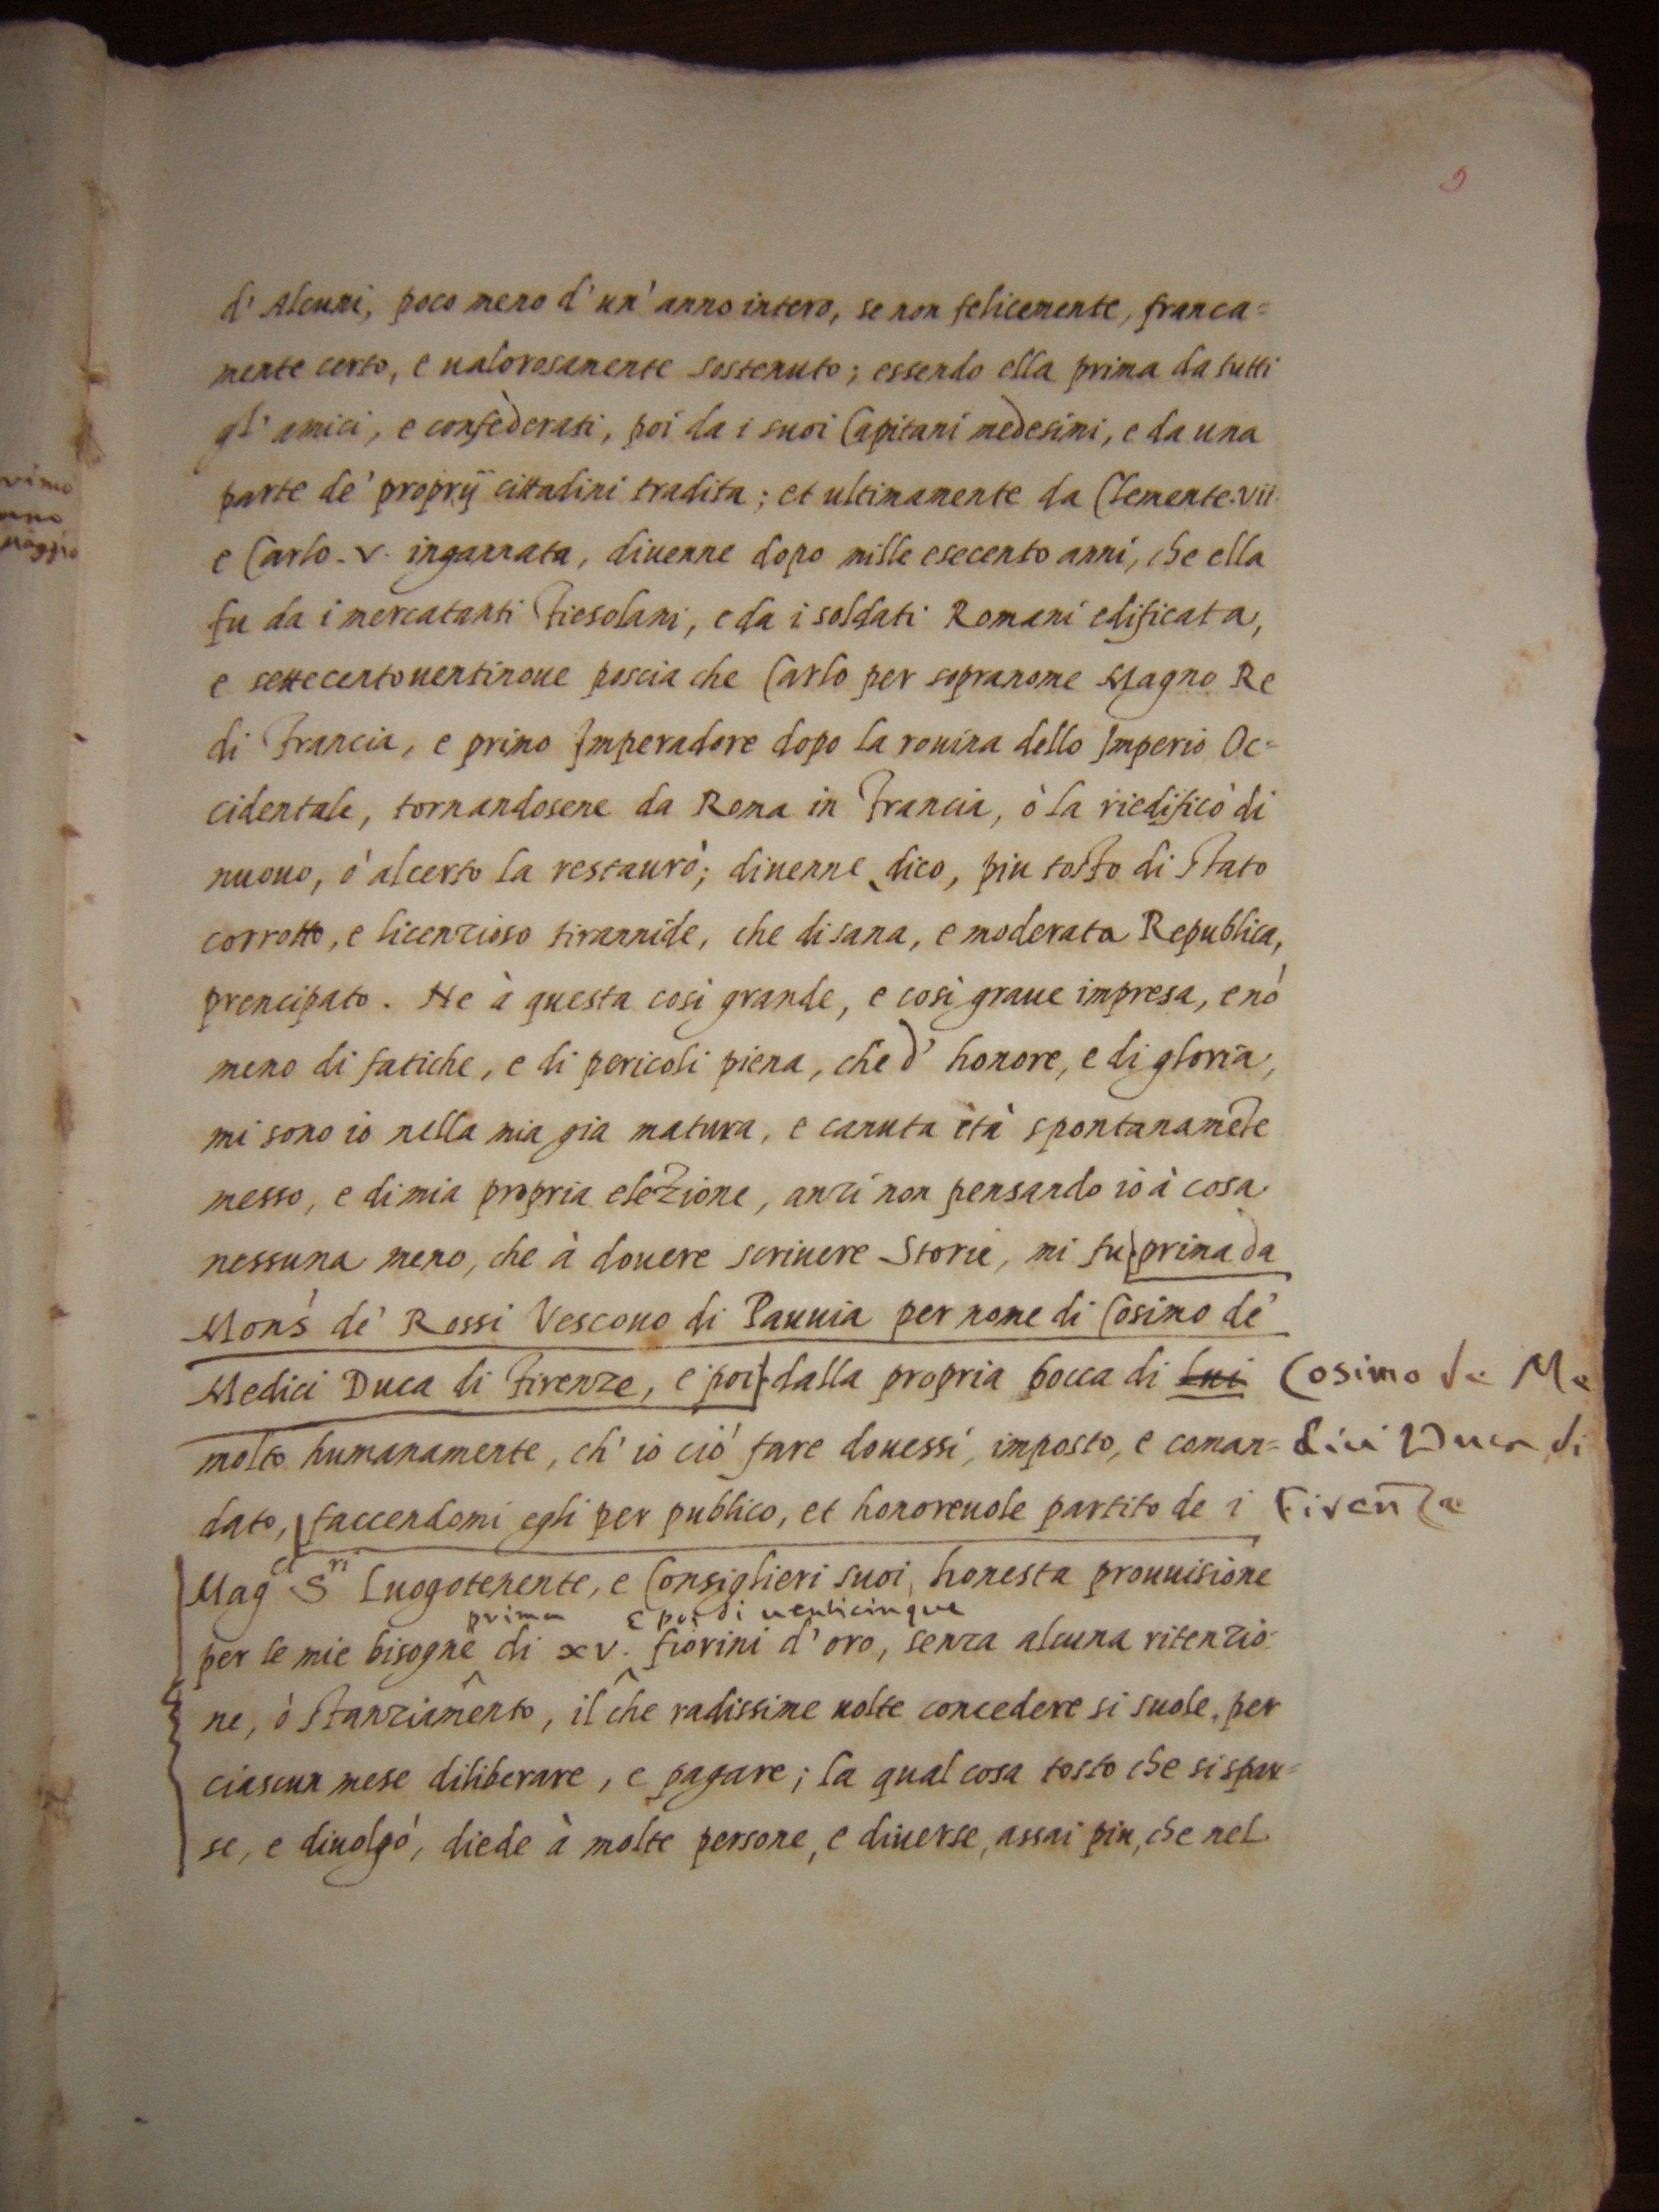 9
d' Alcuni, poco meno d' un' anno intero, se non felicemente, franca=
mente certo, e ualorosamente sostenuto; essendo ella prima da tutti
gl' amici, e confederati, poi da i suoi Capitani medesimi, e da una
parte de' proprij cittadini tradita; et ultimamente da Clemente. VII.
e Carlo. V. ingannata, diuenne dopo mille esecento anni, che ella
fu da i mercatanti Fiesolani, e da i soldati Romani edificata,
e settecentouentinoue poscia che Carlo per sopranome Magno Re
di Francia, e primo Imperadore dopo la rouina dello Imperio Oc=
cidentale, tornandosene da Roma in Francia, ò la riedificò di
nuouo, ò alcerto la restaurò; diuenne dico, piu tosto di stato
corrotto, e licenzioso tirannide, che di sana, e moderata Republica,
prencipato. Ne à questa così grande, e così graue impresa, e nō
meno di fatiche, e di pericoli piena, che d' honore, e di gloria,
mi sono io nella mia gia matura, e canuta età spontanamēte
messo, e di mia propria elezione, anzi non pensando io à cosa
nessuna meno, che à douere scriuere Storie, mi fu prima da
Mons.' de' Rossi Vescouo di Pauuia per nome di Cosimo de'
Medici Duca di Firenze, e poi dalla propria bocca di lui Cosimo de Me
molto humanamente, ch' io ciò fare douessi, imposto, e coman= dici Duca di
dato, faccendomi egli per publico, et honoreuole partito de i Firenze
Mag.ci S.ri Luogotenente, e Consiglieri suoi, honesta prouuisione
prima e poi di uenticinque
per le mie bisogne di xv. fiorini d' oro, senza alcuna ritenzio=
ne, ò stanziamento, il che radissime uolte concedere si suole, per
ciascun mese diliberare, e pagare; la qual cosa tosto che si spar=
se, e diuolgò, diede à molte persone, e diuerse, assai piu, che nel